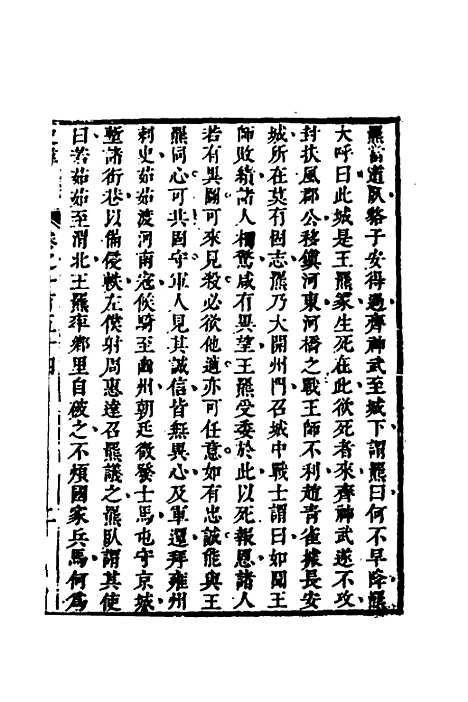 羆當道臥貉子安得過齊神武至城下謂羆曰何不早降羆
大呼曰此城是王羆冢生死在此欲死者來齊神武遂不攻
封扶風郡公移鎮河東河橋之戰王師不利趙青雀據長安
城所在莫有固志羆乃大開州門召城中戰士謂曰如聞王
師敗績諸人相驚咸有異望王羆受委於此以死報恩諸人
若有異圖可來見殺必欲他適亦可任意如有忠誠能與王
羆同心可共固守軍人見其誠信皆無異心及軍還拜雍州
刺史茹茹渡河南寇候騎至豳州朝廷徵發士馬屯守京城
塹諸街巷以備侵軼左僕射周惠達召羆議之羆臥謂其使
曰若茹茹至渭北王羆率鄉里自破之不煩國家兵馬何爲